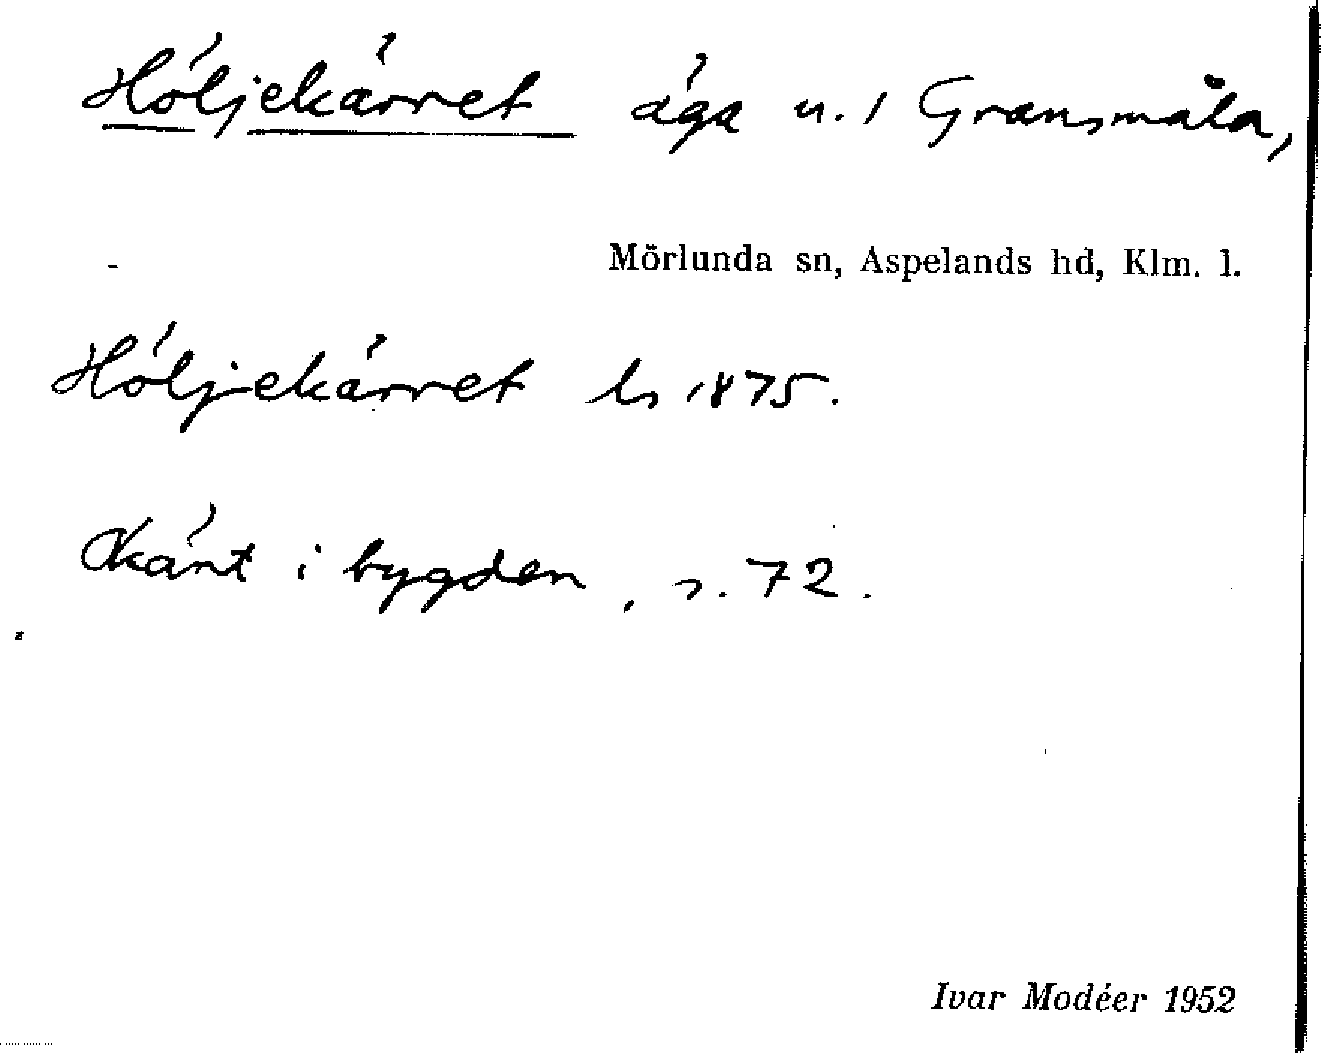 Höljekärret äga u. 1 Gransmåla,
Mörlunda sn, Aspelands hd, Klm. l.
Höljekärret ls 1875.
Okänt i bygden, s. 72.
Ivar Modéer 1952